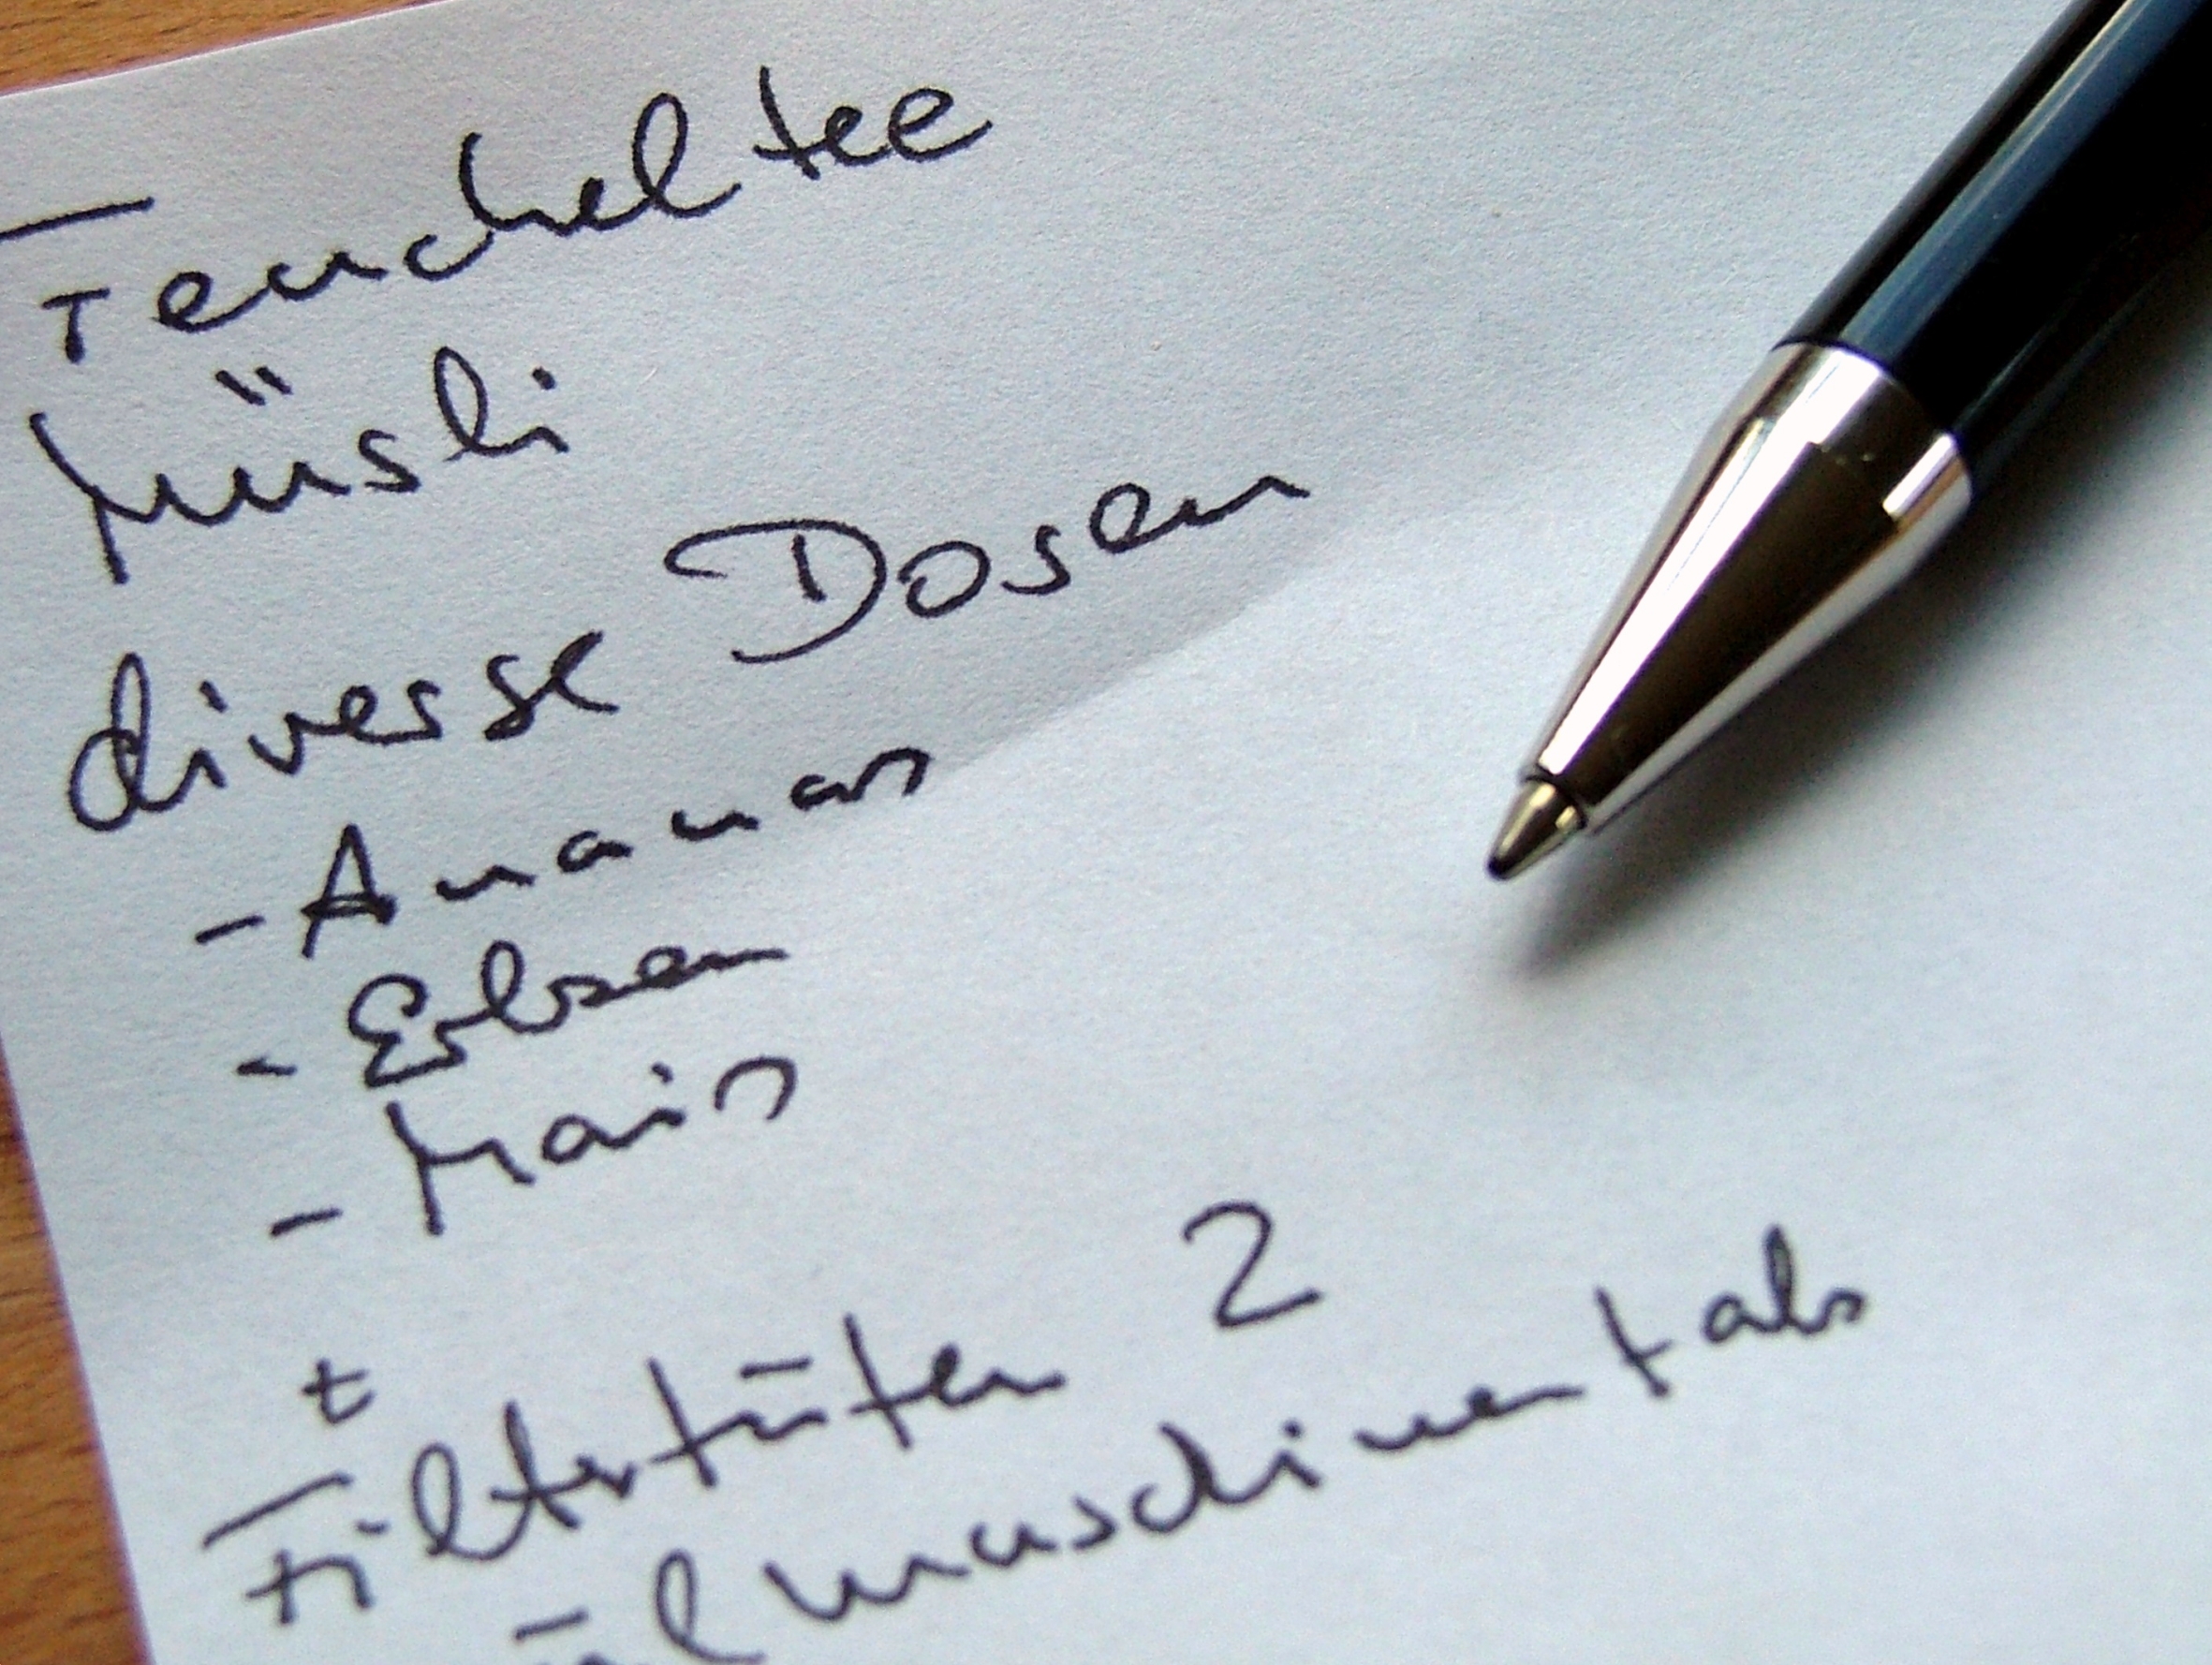 Fencheltee
Müsli
diverse Dosen
- Ananas
- Erbsen
- Mais
+
Filtertüten 2
ülmaschinentabs